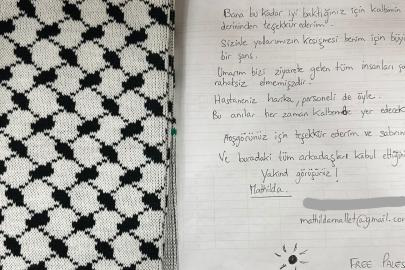 Bana bu kadar iyi baktığınız için kalbimin
derininden teşekkür ederim
Sizinle yollarımızın kesişmesi benim için büyü
bir şans.
Umarım bizi ziyarete gelen tüm insanlar
rahatsız etmemişzdir.
Hastaneniz harika, personeli de öyle.
Bu anılar her zaman kalbimde yer edecek
Hoşgörünüz için teşekkür ederim ve sabrını
Ve buradaki tüm arkadaşları kabul ettiğini
Yakında görüşürüz!
Mathilda.
mathildamallet@gmail.com
FREE PALES